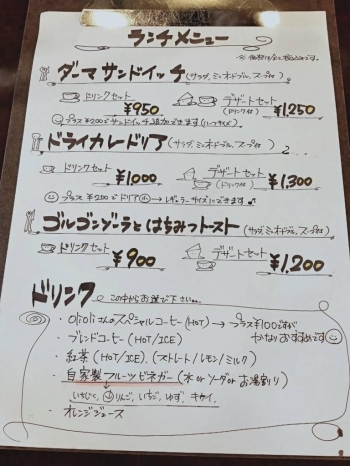 ランチメニュー
ダーマサンドイッチ(サラダ、ミニオードブル、スープ付)
ドリンクセット ¥950 デザートセット(ドリンク付) ¥1,250
プラス¥200でサンドイッチ追加できます
ドライカレードリア(サラダ、ミニオードブル、スープ付)
ドリンクセット ¥1000 デザートセット(ドリンク付) ¥1,300
プラス¥200でドリア小→レギュラーサイズにできます♪
ゴルゴンゾーラとはちみつトースト(サラダ、ミニオードブル、スープ付)
ドリンクセット ¥900 デザートセット ¥1,200
ドリンク この中からお選び下さい
・Olioliさんのスペシャルコーヒー(HOT)→プラス¥100ですが
かなりおすすめです
・ブレンドコーヒー(HOT/ICE)
・紅茶(HOT/ICE)(ストレート/レモン/ミルク)
・自家製フルーツビネガー(水orソーダorお湯割り)
いちじく、りんご、いちご、ゆず、キウイ
・オレンジジュース